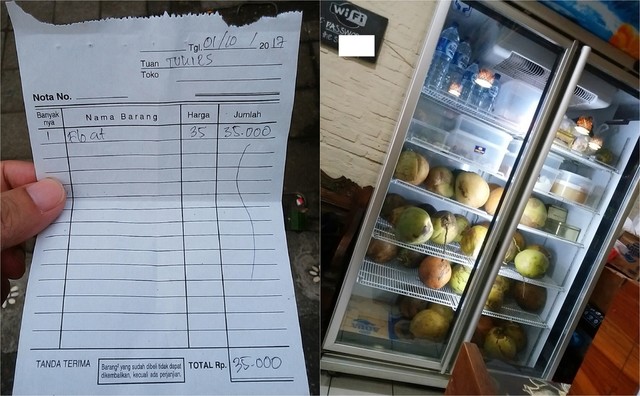 Tgl. 01/10/2017
Tuan TUKIES
Toko
Nota No.
Banyak nya Nama Barang Harga Jumlah
1 Float 35 35.000
TANDA TERIMA
Barang² yang sudah dibeli tidak dapat
dikembalikan, kecuali ada perjanjian.
TOTAL Rp. 35.000
WiFi
PASSWORD